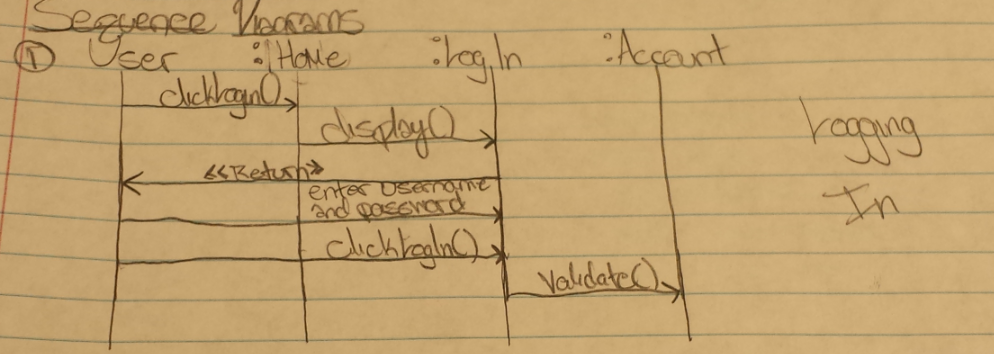 Sequence Diagrams
① User :Home :LogIn :Account
clickLogin()
display()
Logging
<<Return>>
enter username
and password
In
clickLogIn()
validate()